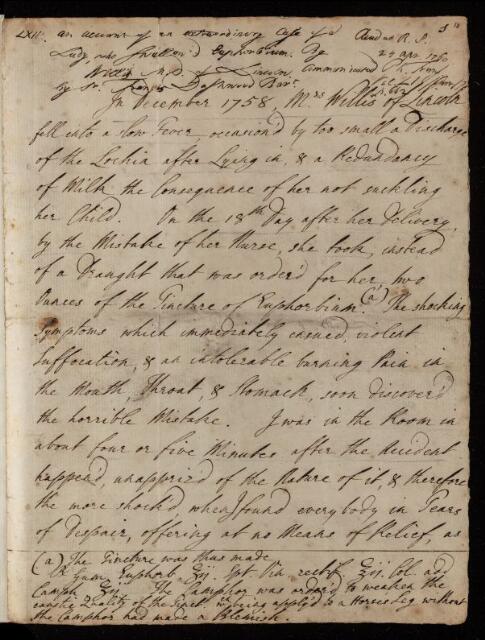 LXII. an account of an extraordinary Case of a
Lady who swallow'd Euphorbium. By
Willis M.D. of Lincoln, Communicated
by Sr. Francis Dashwood Bart.
Read at R. S.
24 apr. 1760
In December 1758, Mrs Willis of Lincoln
fell into a slow Fever, occasion'd by too small a Discharge
of the Lochia after Lying in, & a Redundancy
of Milk the Consequence of her not suckling
her Child. On the 18th Day after her Delivery,
by the Mistake of her Nurse, she took, instead
of a Draught that was order'd for her, two
Ounces of the Tincture of Euphorbium. (a) The shocking
Symptoms which immediately ensued, violent
Suffocation, & an intolerable burning Pain in
the Mouth, Throat, & Stomach, soon discover'd
the horrible Mistake. I was in the Room in
about four or five Minutes after the Accident
happen'd, unappriz'd of the Nature of it, & therefore
the more shock'd, when I found every body in Tears
of Despair, offering at no Means of Relief, as
(a) The Tincture was thus made
Gum Euphorb. Spt. Vin rectif. Col. add
Camph. The Camphor was order'd to weaken the
caustic Quality of the Tinct. being apply'd to a Horses Leg without
the Camphor had made a Blemish.